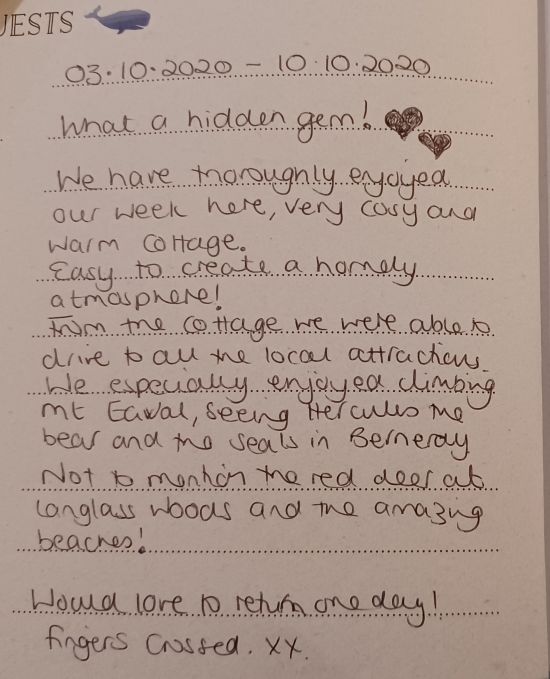 UESTS
03.10.2020 - 10.10.2020
What a hidden gem!
We have thoroughly enjoyed
our week here, very cosy and
warm cottage.
Easy to create a homely
atmosphere!
From the cottage we were able to
drive to all the local attractions.
We especially enjoyed climbing
Mt Eaval, seeing Hercules the
bear and the seals in Berneray
Not to mention the red deer at
Langlass woods and the amazing
beaches!
Would love to return one day!
fingers crossed. xx.